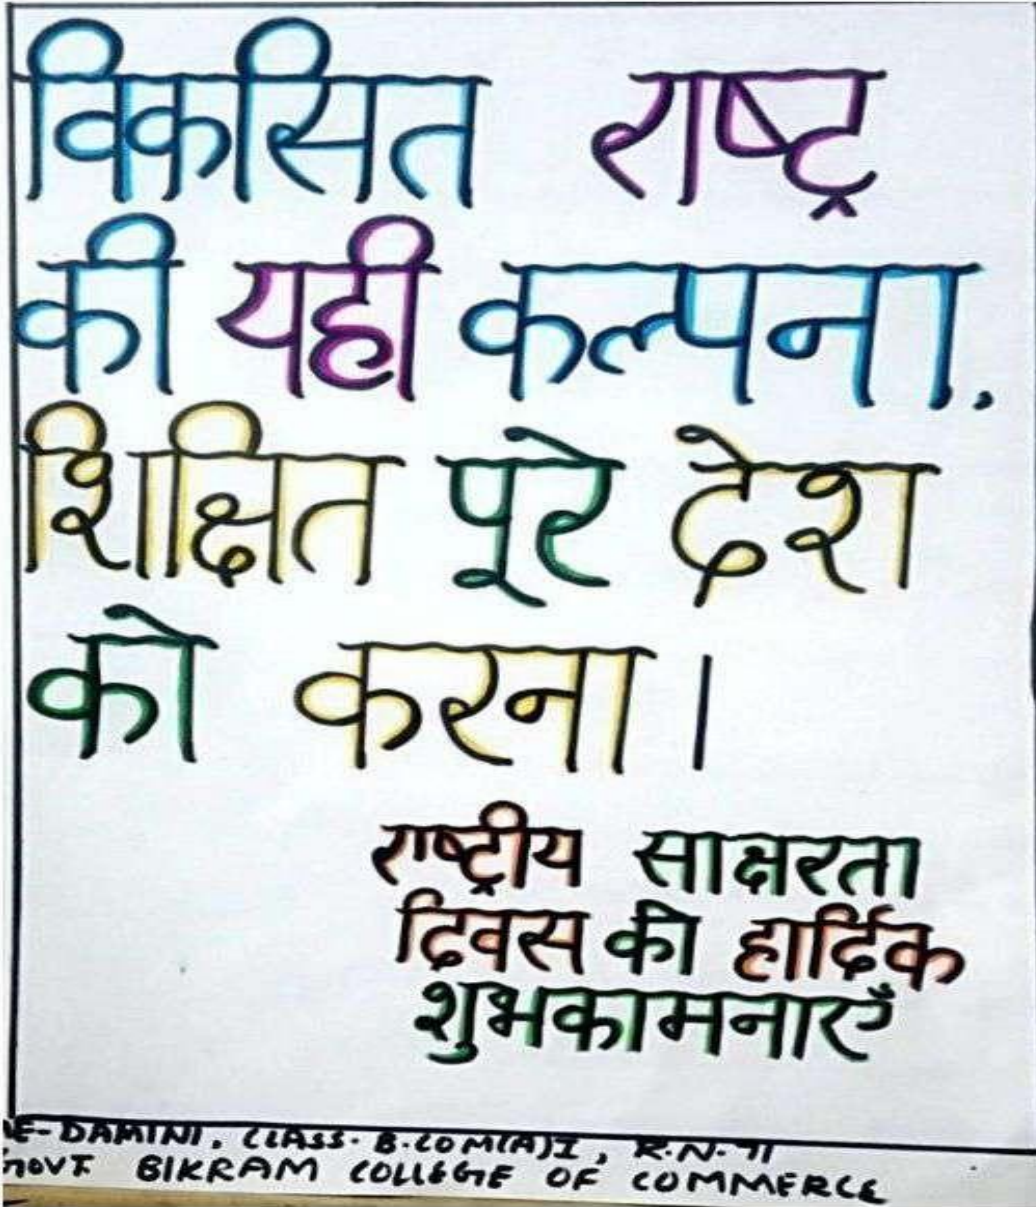 विकसित राष्ट्र
की यही कल्पना,
शिक्षित पूरे देश
को करना।
राष्ट्रीय साक्षरता
दिवस की हार्दिक
शुभकामनाएँ
E-DAMINI, CLASS- B.COM(A)I, R.N-71
GOVT BIKRAM COLLEGE OF COMMERCE